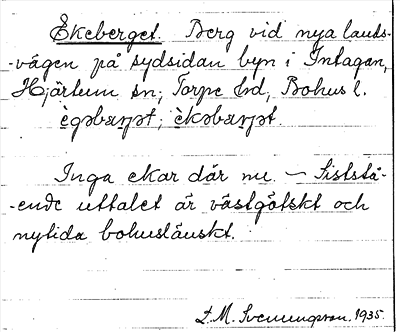 Ekeberget. Berg vid nya lands-
-vägen på sydsidan byn i Intagan,
Hjärtum sn; Torpe hd, Bohus l.
ègəbærjət; èkəbærjət.
Inga ekar där nu. – Siststå-
-ende uttalet är västgötskt och
nytida bohuslänskt.
L.M. Svenungsson. 1935.